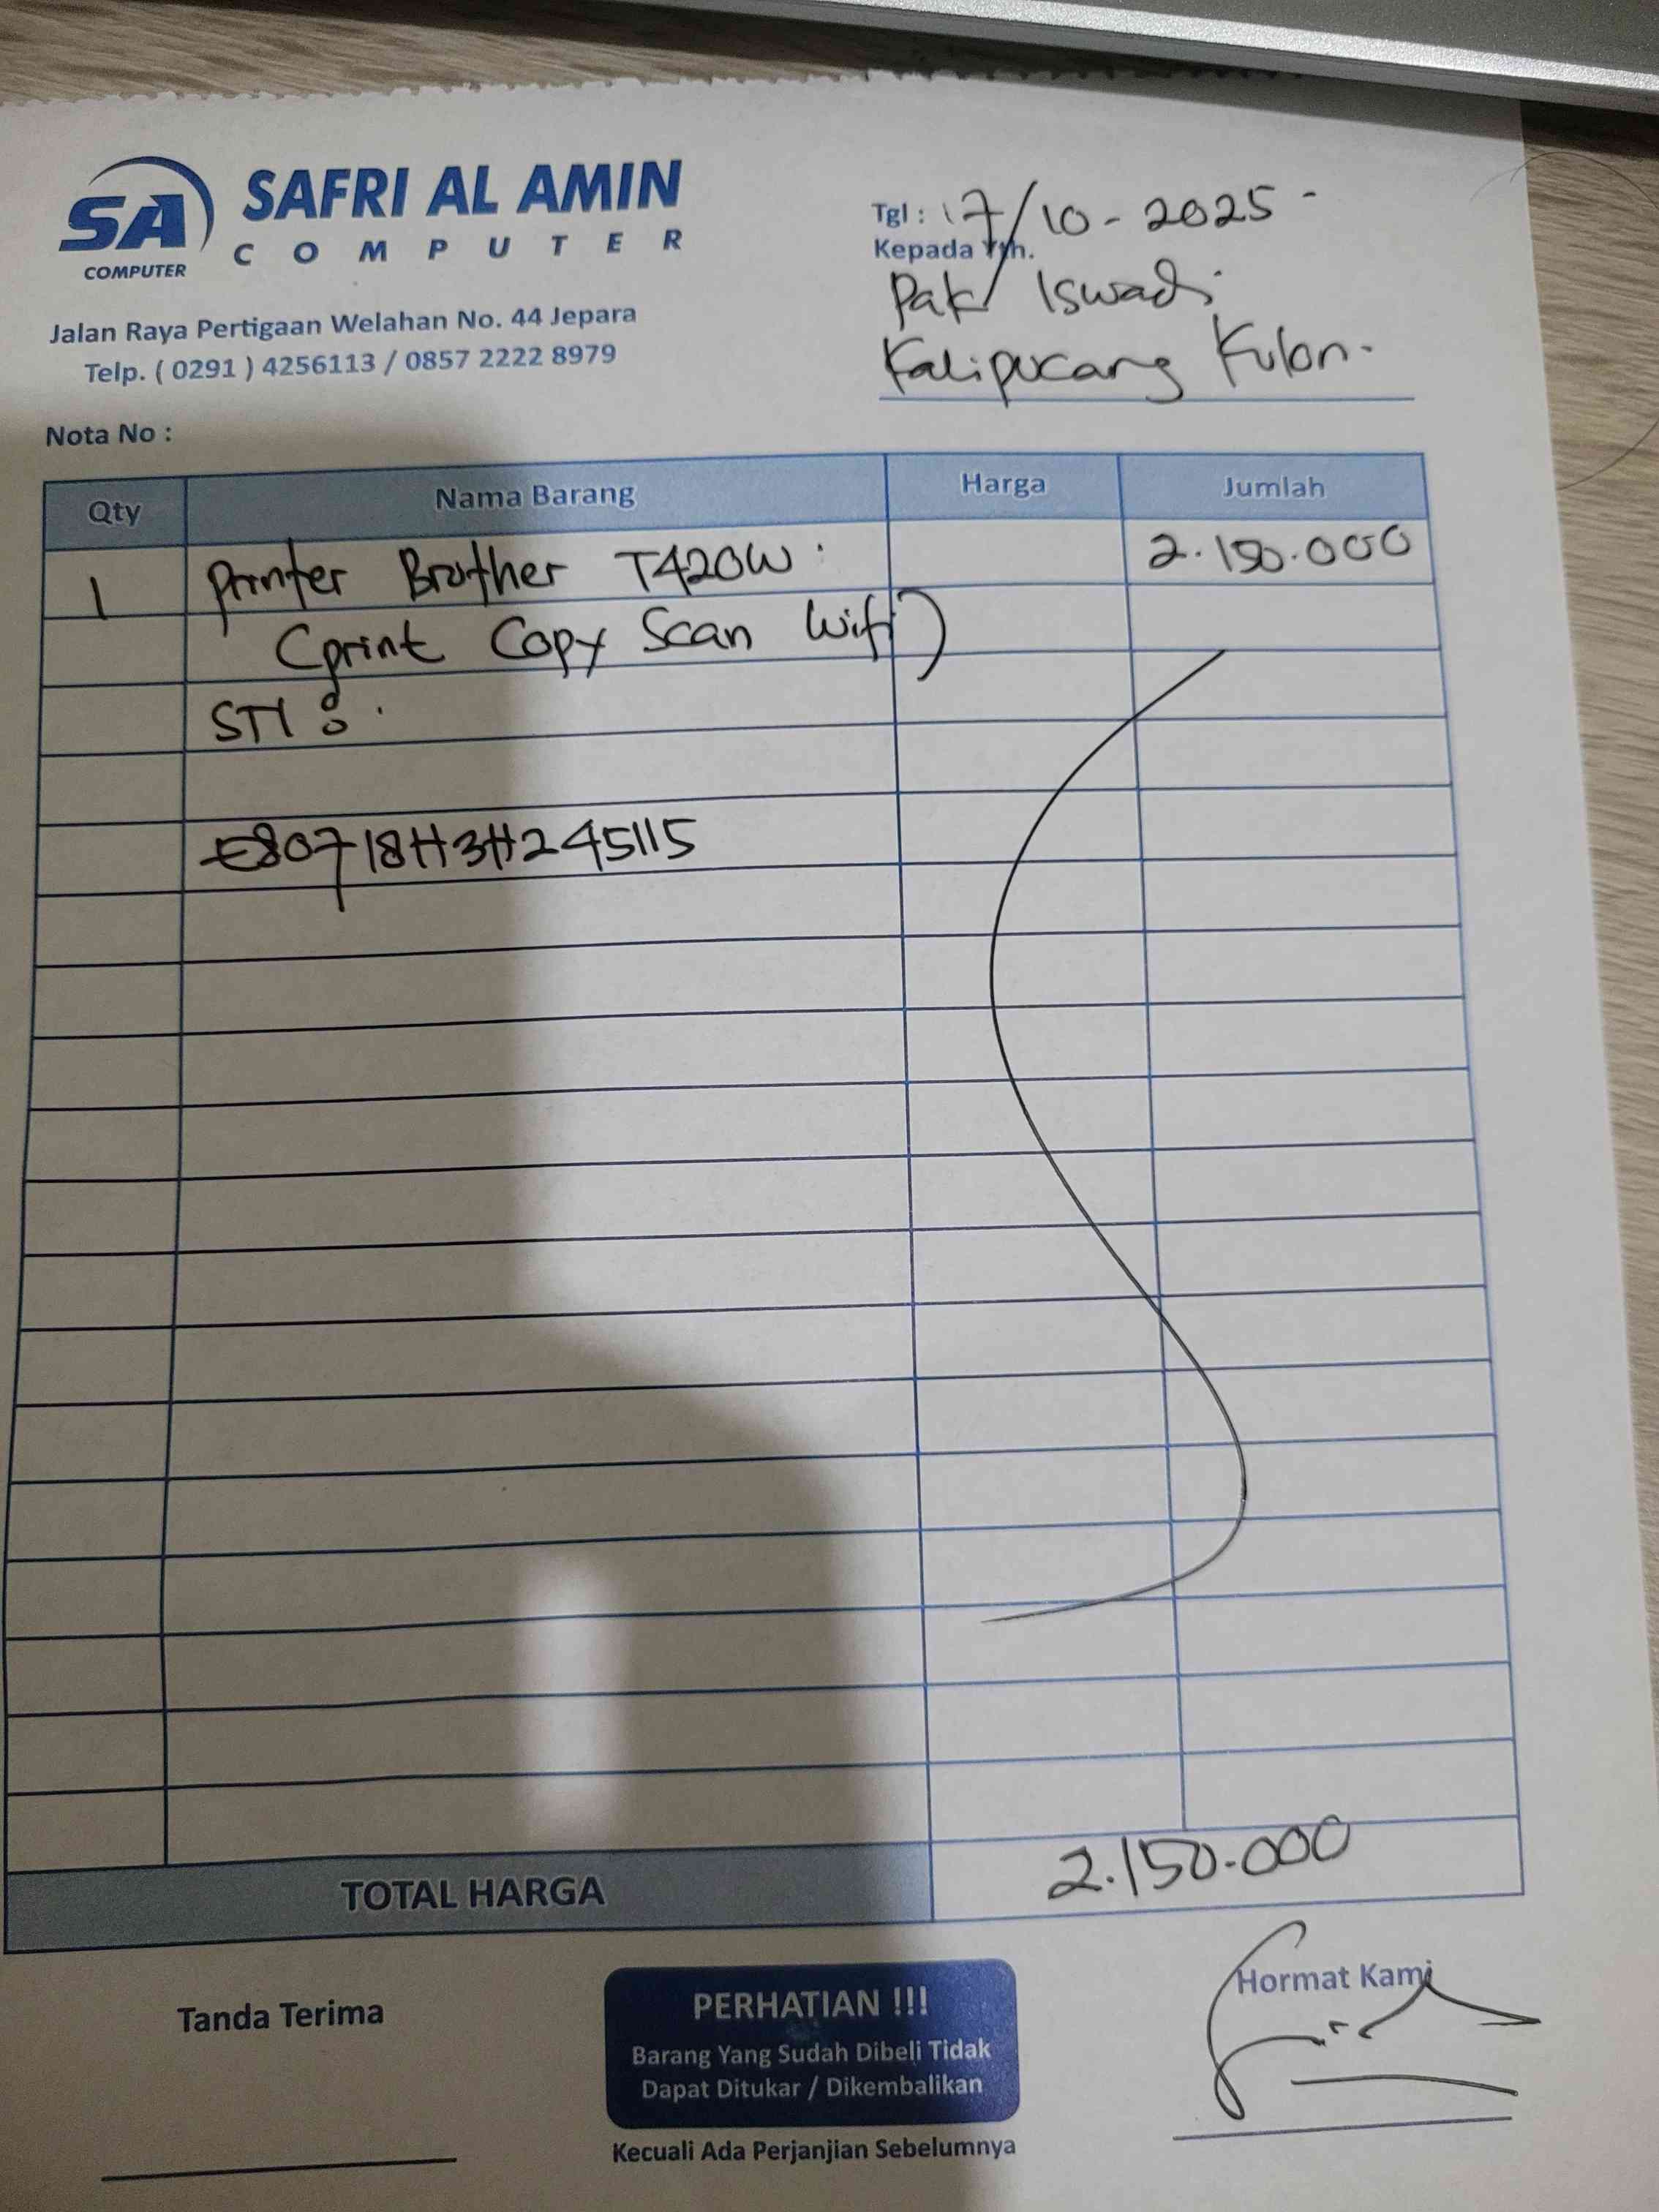 SA
COMPUTER
SAFRI AL AMIN
COMPUTER
Jalan Raya Pertigaan Welahan No. 44 Jepara
Telp. ( 0291 ) 4256113 / 0857 2222 8979
Tgl : 17/10-2025-
Kepada Yth.
Pak Iswadi
Kalipucang Kulon.
Nota No :
Qty Nama Barang Harga Jumlah
1 Printer Brother T420W 2.150.000
(print Copy Scan Wifi)
SN :
E80718H3H245115
TOTAL HARGA 2.150.000
Tanda Terima
PERHATIAN !!!
Barang Yang Sudah Dibeli Tidak
Dapat Ditukar / Dikembalikan
Kecuali Ada Perjanjian Sebelumnya
Hormat Kami